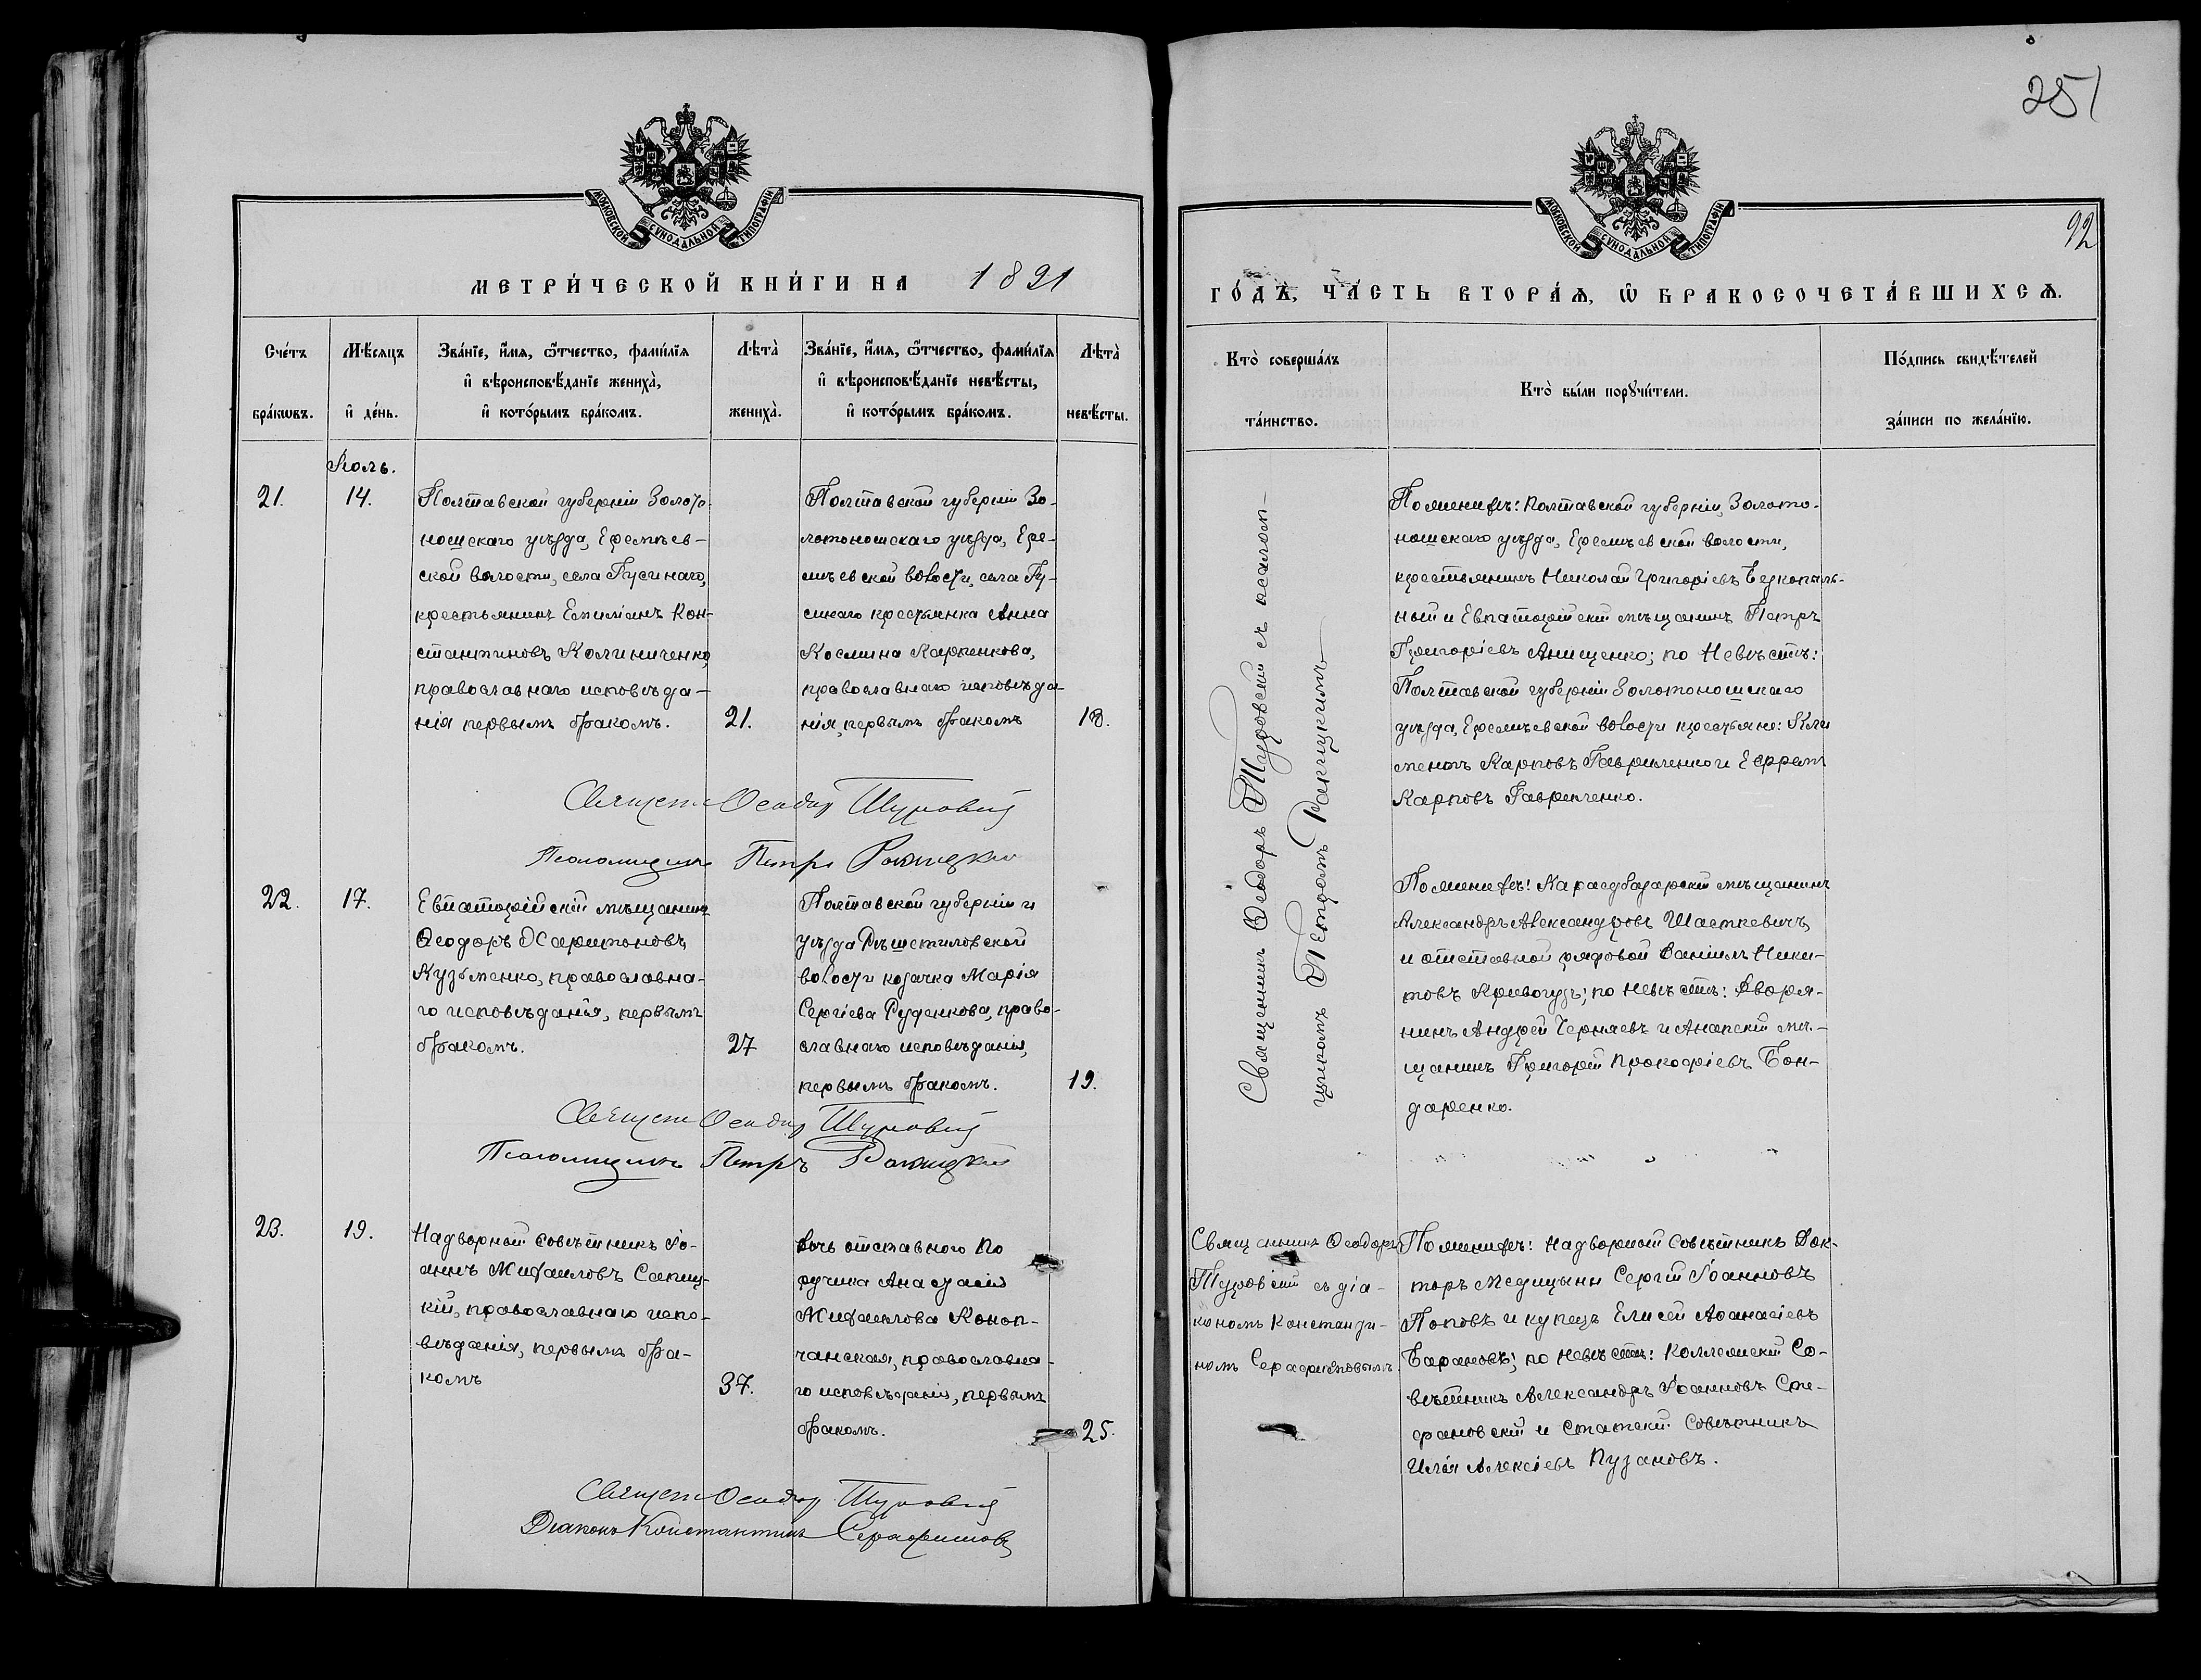 251
92
МОСКОВСКОЙ СѴНОДАЛЬНОЙ ТИПОГРАФІИ
МОСКОВСКОЙ СѴНОДАЛЬНОЙ ТИПОГРАФІИ
МЕТРИ́ЧЕСКОЙ КНИ́ГИ НА 1891
ГО́ДЪ, ЧА́СТЬ ВТОРА́Ѧ, Ѡ҆ БРАКОСОЧЕТА́ВШИХСѦ.
Сче́тъ бра́кѡвъ.
Мѣ́сяцъ и҆ де́нь.
Зва́нїе, и҆́мя, ѻ҆́тчество, фамилїя
и҆ вѣроисповѣ́данїе жениха̀,
и҆ кото́рымъ бра́комъ.
Лѣта̀ жениха̀.
Зва́нїе, и҆́мя, ѻ҆́тчество, фамилїя
и҆ вѣроисповѣ́данїе невѣ́сты,
и҆ кото́рымъ бра́комъ.
Лѣта̀ невѣ́сты.
Кто̀ соверша́лъ та́инство.
Кто̀ бы́ли порꙋчи́тели.
По́дпись свидѣ́телей за́писи по жела́нїю.
Іюль.
21.
14.
Полтавской губерніи Золото-
ношскаго уѣзда, Еремѣев-
ской волости, села Гусинаго,
крестьянинъ Емиліанъ Кон-
стантиновъ Калиниченко,
православнаго исповѣда-
нія первымъ бракомъ.
21.
Полтавской губерніи Зо-
лотоношскаго уѣзда, Ере-
мѣевской волости, села Гу-
синаго крестьянка Анна
Космина Карпенкова,
православнаго исповѣда-
нія, первымъ бракомъ
18.
Священникъ Ѳеодоръ Туровскій съ псалом-
щикомъ Петромъ Ракицкимъ
По женихѣ: Полтавской губерніи, Золото-
ношскаго уѣзда, Еремѣевской волости,
крестьянинъ Николай Григоріевъ Безкопыль-
ный и Евпаторійскій мѣщанинъ Петръ
Григоріевъ Анищенко; по Невѣстѣ:
Полтавской губерніи Золотоношскаго
уѣзда, Еремѣевской волости крестьяне: Кли
ментъ Карповъ Гавриленко и Ефремъ
Карповъ Гавриленко.
Священ Ѳеодор Туровскій
Псаломщикъ Петръ Ракицкій
22.
17.
Евпаторійскій мѣщанинъ
Ѳеодоръ Харитоновъ
Кузьменко, православна-
го исповѣданія, первымъ
бракомъ.
27
Полтавской губерніи и
уѣзда Рѣшетиловской
волости козачка Марія
Сергіева Руденкова, право-
славнаго исповѣданія,
первымъ бракомъ.
19.
По женихѣ: Карасубазарскій мѣщанинъ
Александръ Александровъ Шасткевичъ
и отставной рядовой Даніилъ Ники-
товъ Кривогузъ; по невѣстѣ: Дворя-
нинъ Андрей Черняевъ и Анапскій мѣ-
щанинъ Григорій Прокофіевъ Бон-
даренко.
Священ Ѳеодор Туровскій
Псаломщикъ Петръ Ракицкій
23.
19.
Надворный совѣтникъ Іо-
аннъ Михаиловъ Сапиц-
кій, православнаго испо-
вѣданія, первымъ бра-
комъ
37.
Дочь отставного По
ручика Анастасія
Михаилова Коноп-
чанская, православна-
го исповѣданія, первымъ
бракомъ.
25.
Священникъ Ѳеодоръ
Туровскій съ діа-
кономъ Константи-
номъ Серафимовымъ
По женихѣ: Надворный Совѣтникъ Док-
торъ Медицыны Сергій Іоанновъ
Поповъ и купецъ Елисей Аѳанасіевъ
Барановъ; по невѣстѣ: Коллежскій Со-
вѣтникъ Александръ Іоанновъ Сте-
фановскій и Статскій Совѣтникъ
Илія Алексіевъ Пузановъ.
Священ Ѳеодор Туровскій
Діаконъ Константинъ Серафимовъ